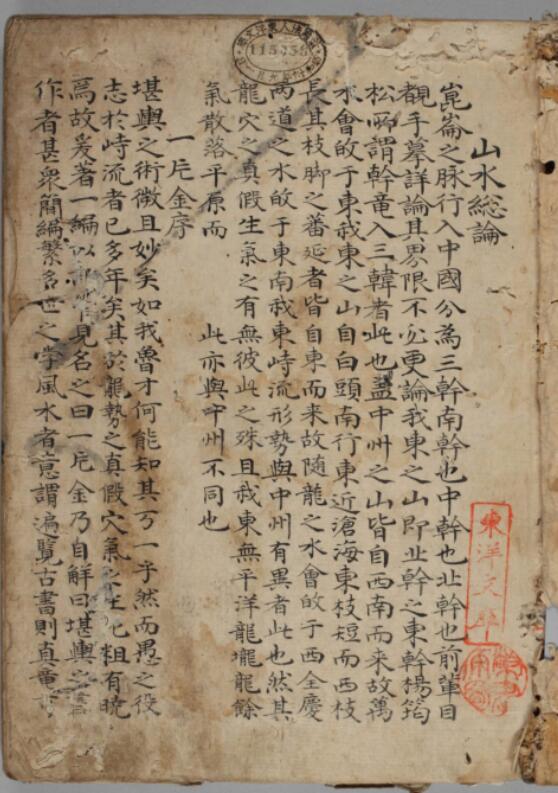 山水総論
崑崙之脉行入中國分為三幹南幹也中幹也北幹也前輩目
覩手摹詳論其界限不必更論我東之山即北幹之東幹楊筠
松所謂幹竜入三韓者此也盖中州之山皆自西南而来故萬
水會敀于東我東之山自白頭南行東近滄海東枝短而西枝
長其枝脚之蕃延者皆自東而来故隨龍之水會敀于西全慶
两道之水敀于東南我東峙流形勢與中州有異者此也然其
龍穴之真假生氣之有無彼此之殊且我東無平洋龍壠龍餘
氣散落平原而 此亦與中州不同也
一片金序
堪輿之術微且妙矣如我魯才何能知其万一乎然而愚之役
志於峙流者已多年矣其於龍勢之真假穴氣之生死粗有曉
焉故爰著一編以管見名之曰一片金乃自解曰堪輿之書
作者甚衆簡編繁多世之学風水者意謂遍覧古書則真竜
東洋文庫